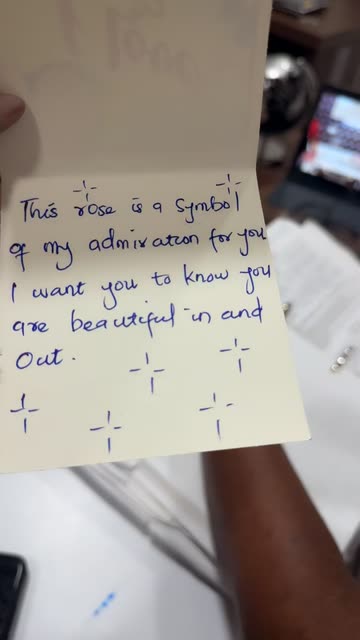 This rose is a symbol
of my admiration for you
I want you to know you
are beautiful in and
out.